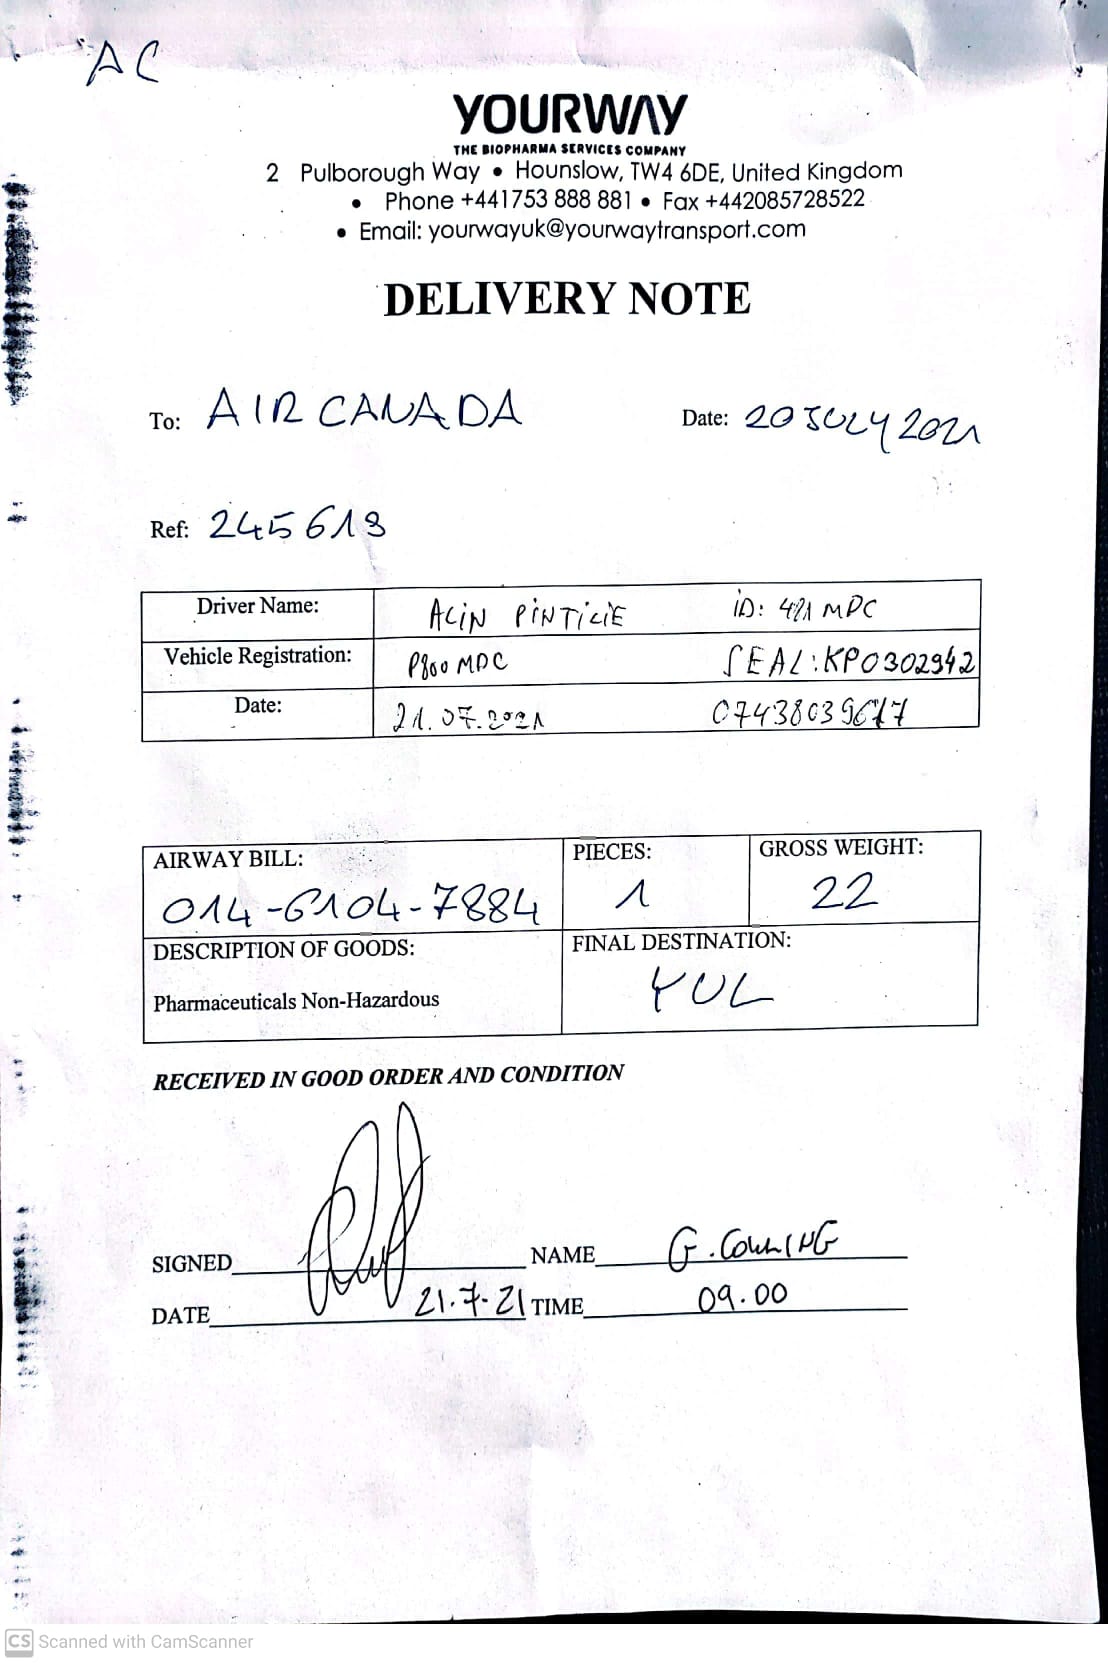 AC
YOURWAY
THE BIOPHARMA SERVICES COMPANY
2 Pulborough Way • Hounslow, TW4 6DE, United Kingdom
• Phone +441753 888 881 • Fax +442085728522
• Email: yourwayuk@yourwaytransport.com
DELIVERY NOTE
To: AIR CANADA Date: 20 JULY 2021
Ref: 245613
Driver Name: ALIN PINTILIE ID: 421 MPC
Vehicle Registration: P800 MDC SEAL: KP0302942
Date: 21.07.2021 07438039617
AIRWAY BILL: PIECES: GROSS WEIGHT:
014-6104-7884 1 22
DESCRIPTION OF GOODS: FINAL DESTINATION:
YUL
Pharmaceuticals Non-Hazardous
RECEIVED IN GOOD ORDER AND CONDITION
SIGNED NAME G.
DATE 21.7.21 TIME 09.00
CS Scanned with CamScanner